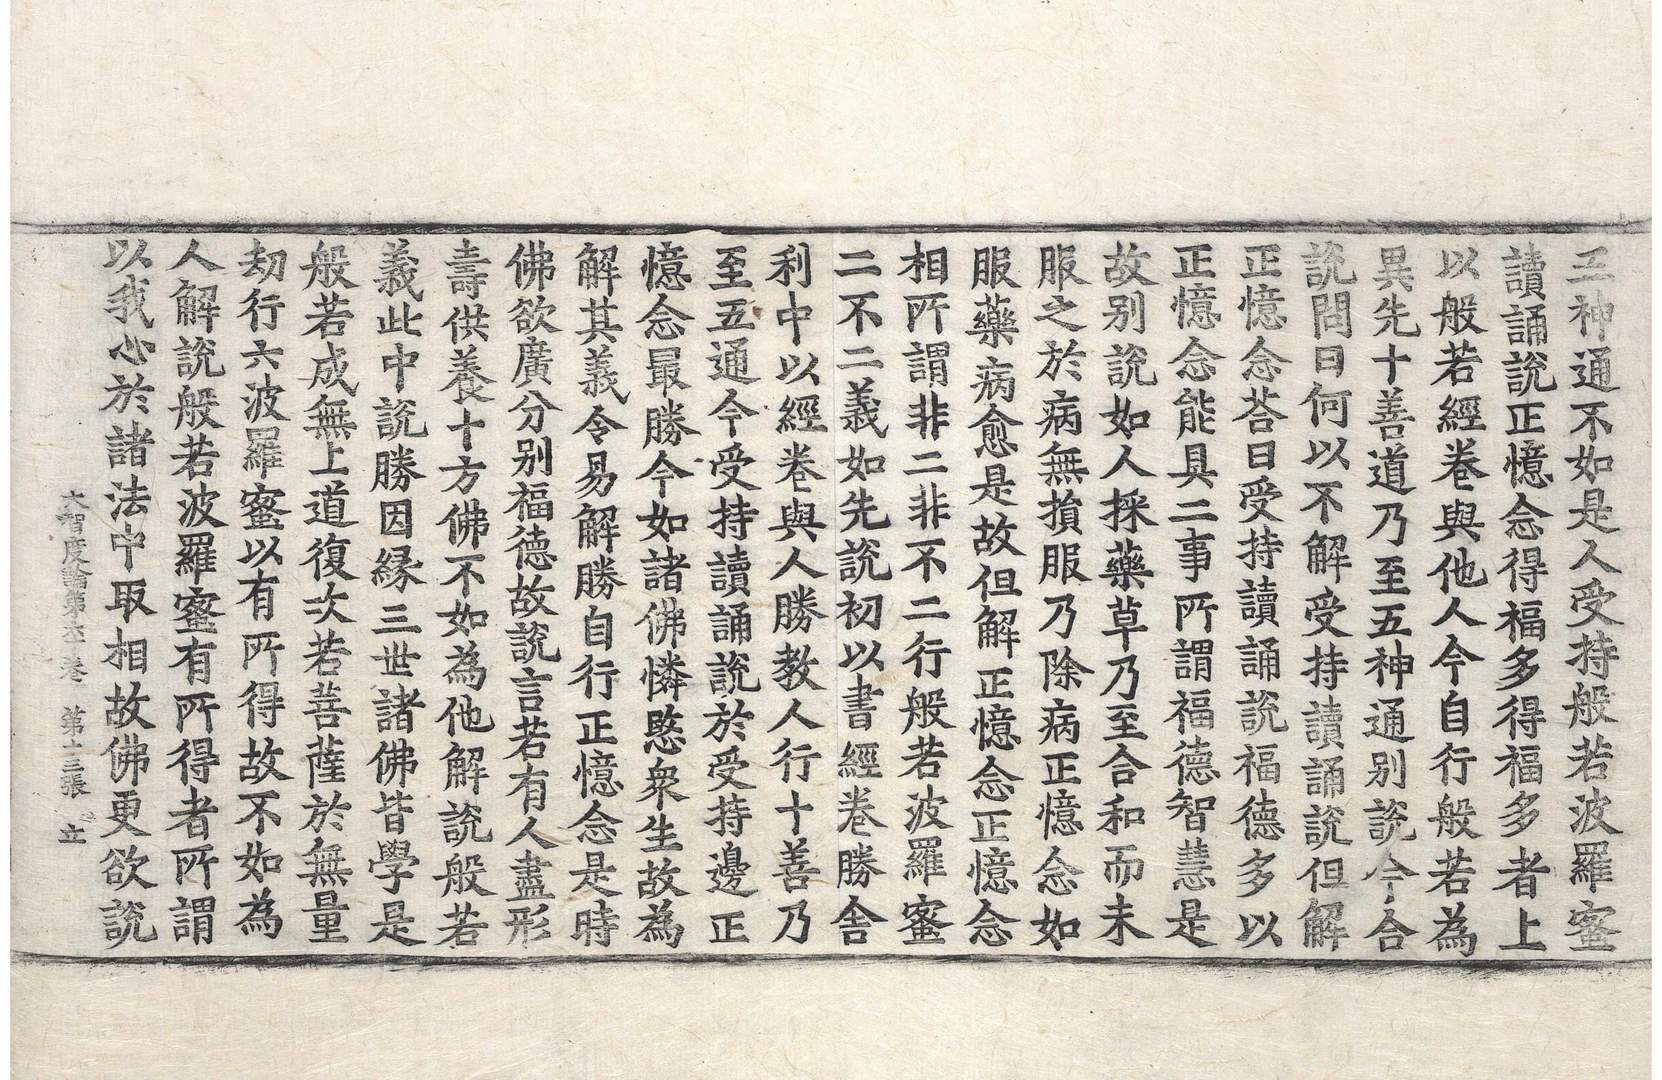 五神通不如是人受持般若波羅蜜
讀誦說正憶念得福多得福多者上
以般若經卷與他人今自行般若為
異先十善道乃至五神通別說今合
說問曰何以不解受持讀誦說但解
正憶念荅曰受持讀誦說福德多以
正憶念能具二事所謂福德智慧是
故別說如人採藥草乃至合和而未
服之於病無損服乃除病正憶念如
服藥病愈是故但解正憶念正憶念
相所謂非二非不二行般若波羅蜜
二不二義如先說初以書經卷勝舍
利中以經卷與人勝教人行十善乃
至五通今受持讀誦說於受持邊正
憶念最勝今如諸佛憐愍衆生故為
解其義令易解勝自行正憶念是時
佛欲廣分別福德故說言若有人盡形
壽供養十方佛不如為他解說般若
義此中說勝因緣三世諸佛皆學是
般若成無上道復次若菩薩於無量
劫行六波羅蜜以有所得故不如為
人解說般若波羅蜜有所得者所謂
以我心於諸法中取相故佛更欲說
大智度論第六十卷 第十三張 立